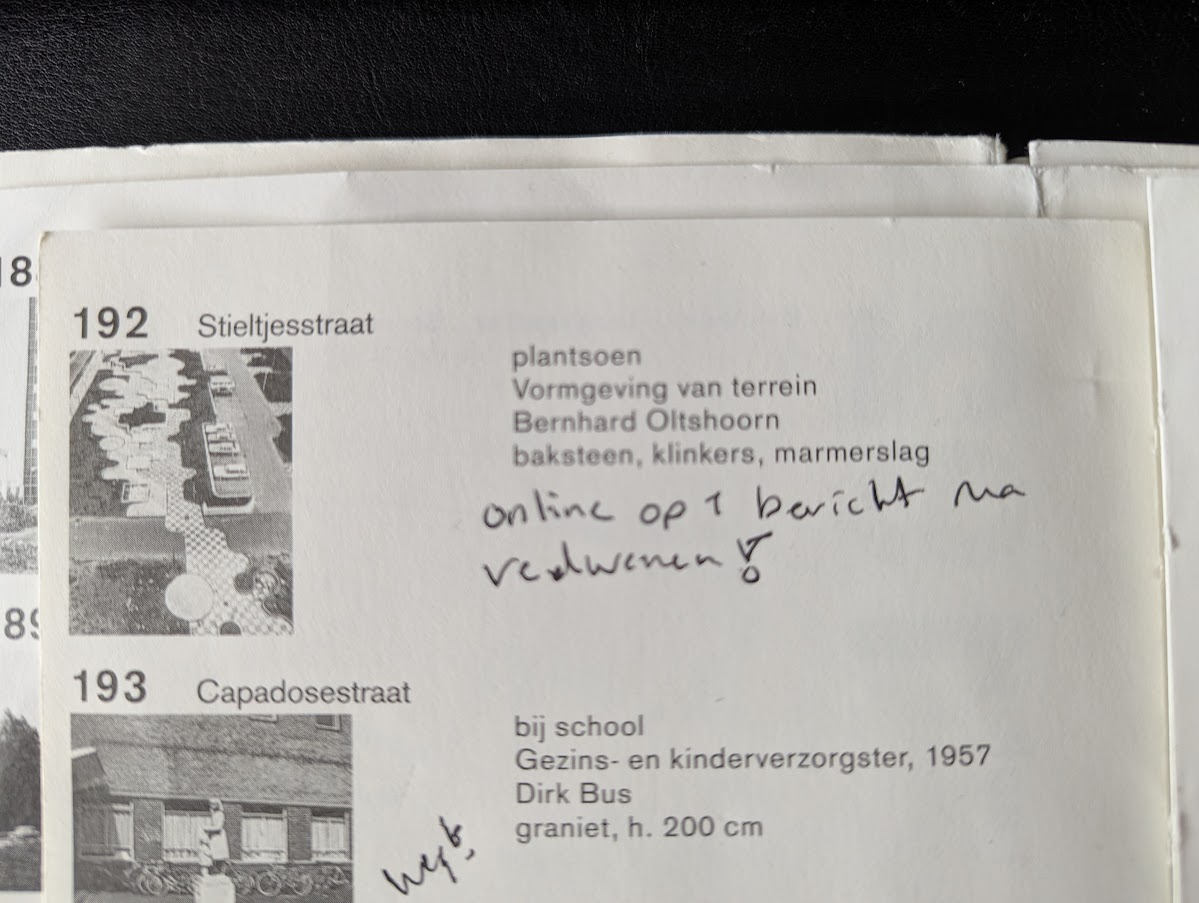 18
192 Stieltjesstraat
plantsoen
Vormgeving van terrein
Bernhard Oltshoorn
baksteen, klinkers, marmerslag
online op 1 bericht na
verdwenen!
89
193 Capadosestraat
bij school
Gezins- en kinderverzorgster, 1957
Dirk Bus
graniet, h. 200 cm